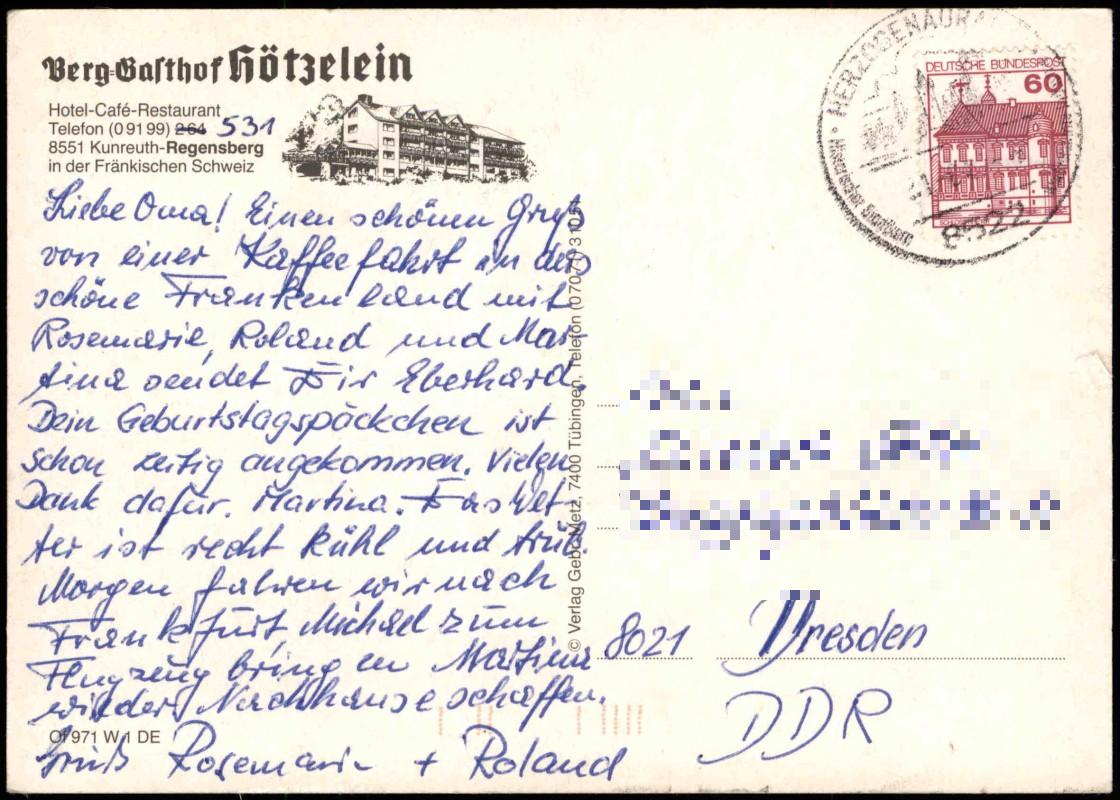 Berg=Gasthof Hötzelein
Hotel-Café-Restaurant
Telefon (0 91 99) 264 531
8551 Kunreuth-Regensberg
in der Fränkischen Schweiz
Liebe Oma! Einen schönen Gruß
von einer Kaffeefahrt in das
schöne Frankenland mit
Rosemarie, Roland und Mar-
tina sendet Dir Eberhard.
Dein Geburtstagspäckchen ist
schon zeitig angekommen. Vielen
Dank dafür. Martina. Das Wet-
ter ist recht kühl und trüb.
Morgen fahren wir nach
Frankfurt, Michael zum
Flugzeug bringen Martina
wieder Nachhause schaffen.
Gruß Rosemarie + Roland
Of 971 W 1 DE
© Verlag Gebr. Metz, 7400 Tübingen, Telefon (0 70 71)
HERZOGENAURA
8522
DEUTSCHE BUNDESPOST
60
8021 Dresden
DDR